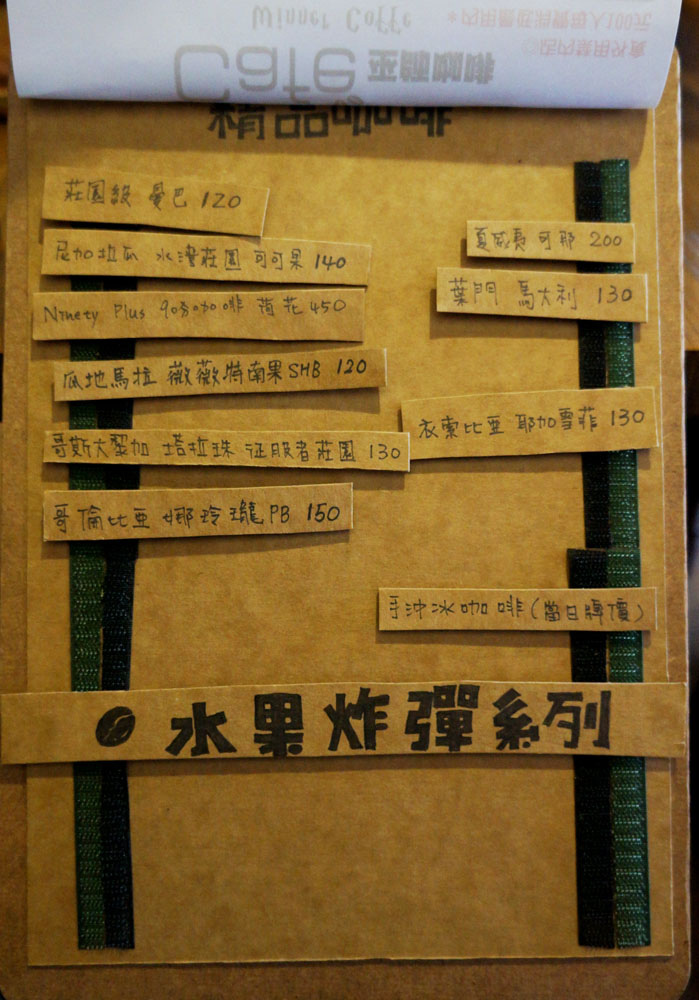 Winner Caffe
Cafe
精品咖啡
莊園級 曼巴 120
尼加拉瓜 水濂莊園 可可果 140
Ninety Plus 90分咖啡 荷花 450
瓜地馬拉 薇薇特南果 SHB 120
哥斯大黎加 塔拉珠 征服者莊園 130
哥倫比亞 娜玲瓏 PB 150
夏威夷 可那 200
葉門 馬大利 130
衣索比亞 耶加雪菲 130
手沖冰咖啡(當日牌價)
水果炸彈系列